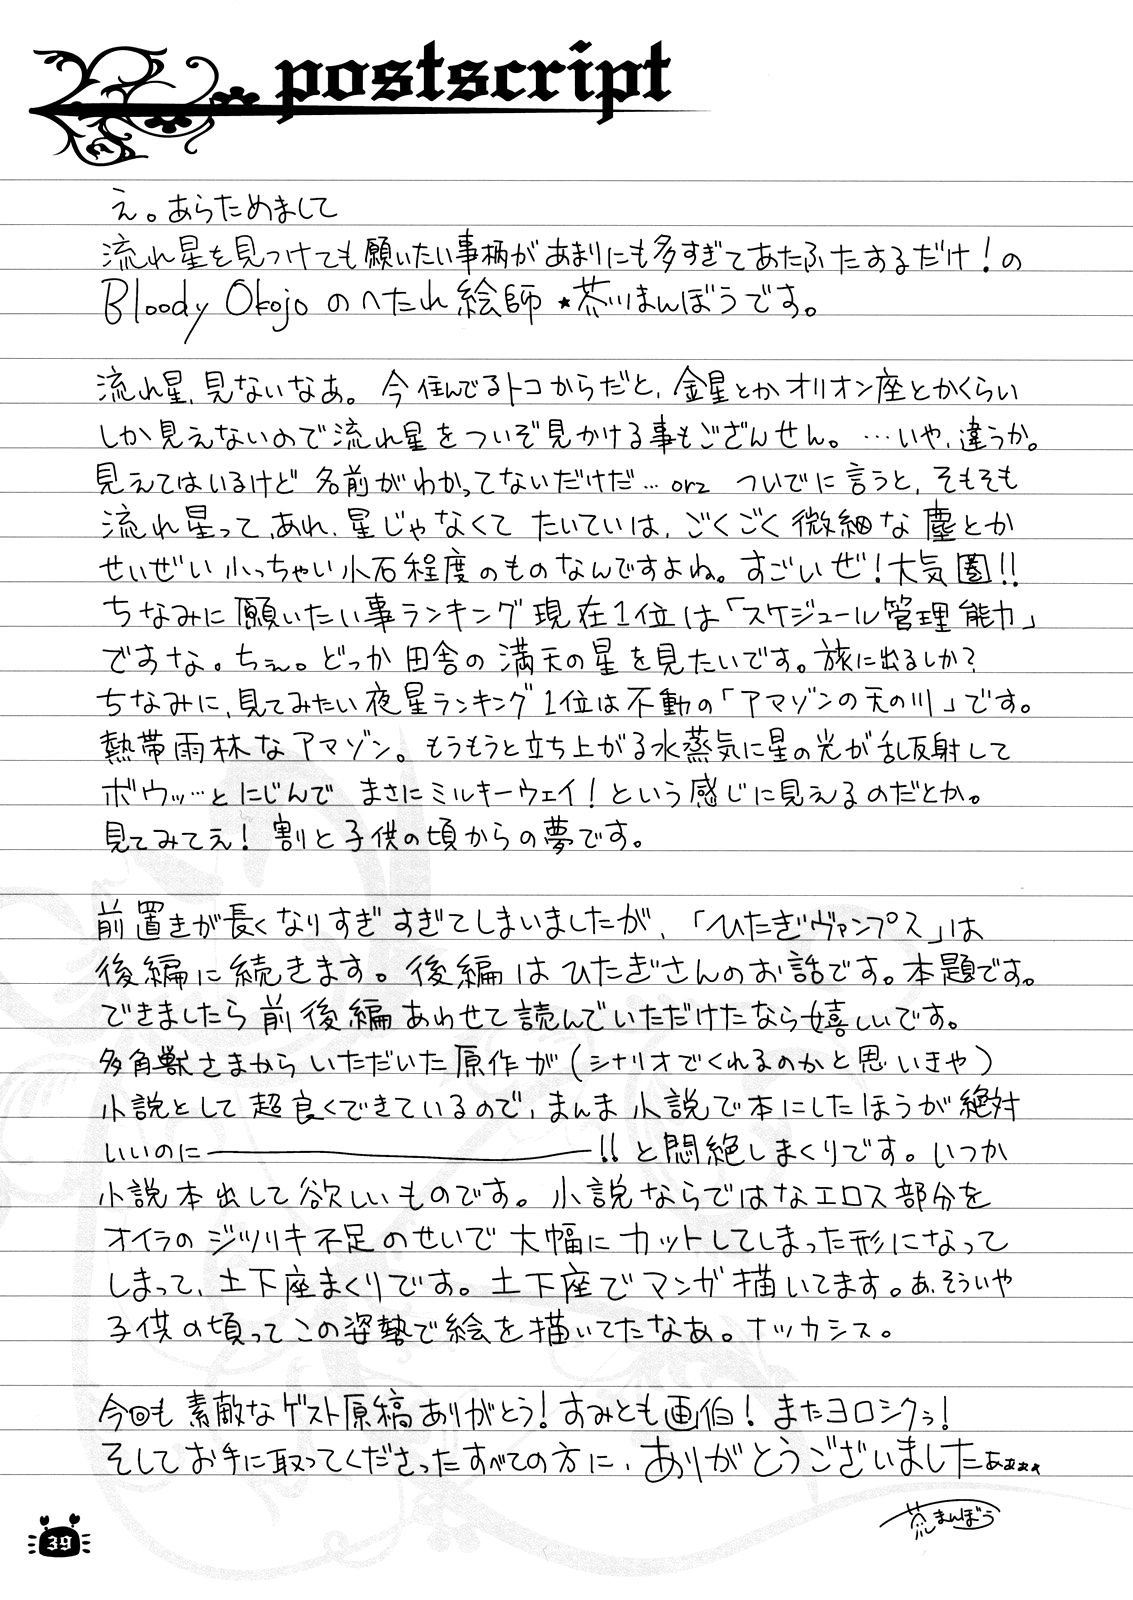 postscript
え。あらためまして
流れ星を見つけても願いたい事柄があまりにも多すぎてあたふたするだけ!の
Bloody Okojoのへたれ絵師★茶川まんぼうです。
流れ星、見ないなあ。今住んでるトコからだと、金星とかオリオン座とかくらい
しか見えないので流れ星をついぞ見かける事もござんせん。…いや、違うか。
見えてはいるけど名前がわかってないだけだ…orz ついでに言うと、そもそも
流れ星って、あれ、星じゃなくてたいていは、ごくごく微細な塵とか
せいぜい小っちゃい小石程度のものなんですよね。すごいぜ!大気圏!!
ちなみに願いたい事ランキング現在1位は「スケジュール管理能力」
ですな。ちぇ。どっか田舎の満天の星を見たいです。旅に出るしか?
ちなみに、見てみたい夜星ランキング1位は不動の「アマゾンの天の川」です。
熱帯雨林なアマゾン。もうもうと立ち上がる水蒸気に星の光が乱反射して
ボウッ…とにじんで まさにミルキーウェイ!という感じに見えるのだとか。
見てみてえ!割と子供の頃からの夢です。
前置きが長くなりすぎすぎてしまいましたが、「ひたぎヴァンプス」は
後編に続きます。後編はひたぎさんのお話です。本題です。
できましたら前後編あわせて読んでいただけたなら嬉しいです。
多角獣さまからいただいた原作が(シナリオでくれるのかと思いきや)
小説として超良くできているので、まんま小説で本にしたほうが絶対
いいのに――――――!!と悶絶しまくりです。いつか
小説本出して欲しいものです。小説ならではなエロス部分を
オイラのジツリキ不足のせいで大幅にカットしてしまった形になって
しまって、土下座まくりです。土下座でマンガ描いてます。あ、そういや
子供の頃ってこの姿勢で絵を描いてたなあ。ナツカシス。
今回も素敵なゲスト原稿ありがとう!すみとも画伯!またヨロシクゥ!
そしてお手に取ってくださったすべての方に、ありがとうございましたぁぁぁぁ
まんぼう
39